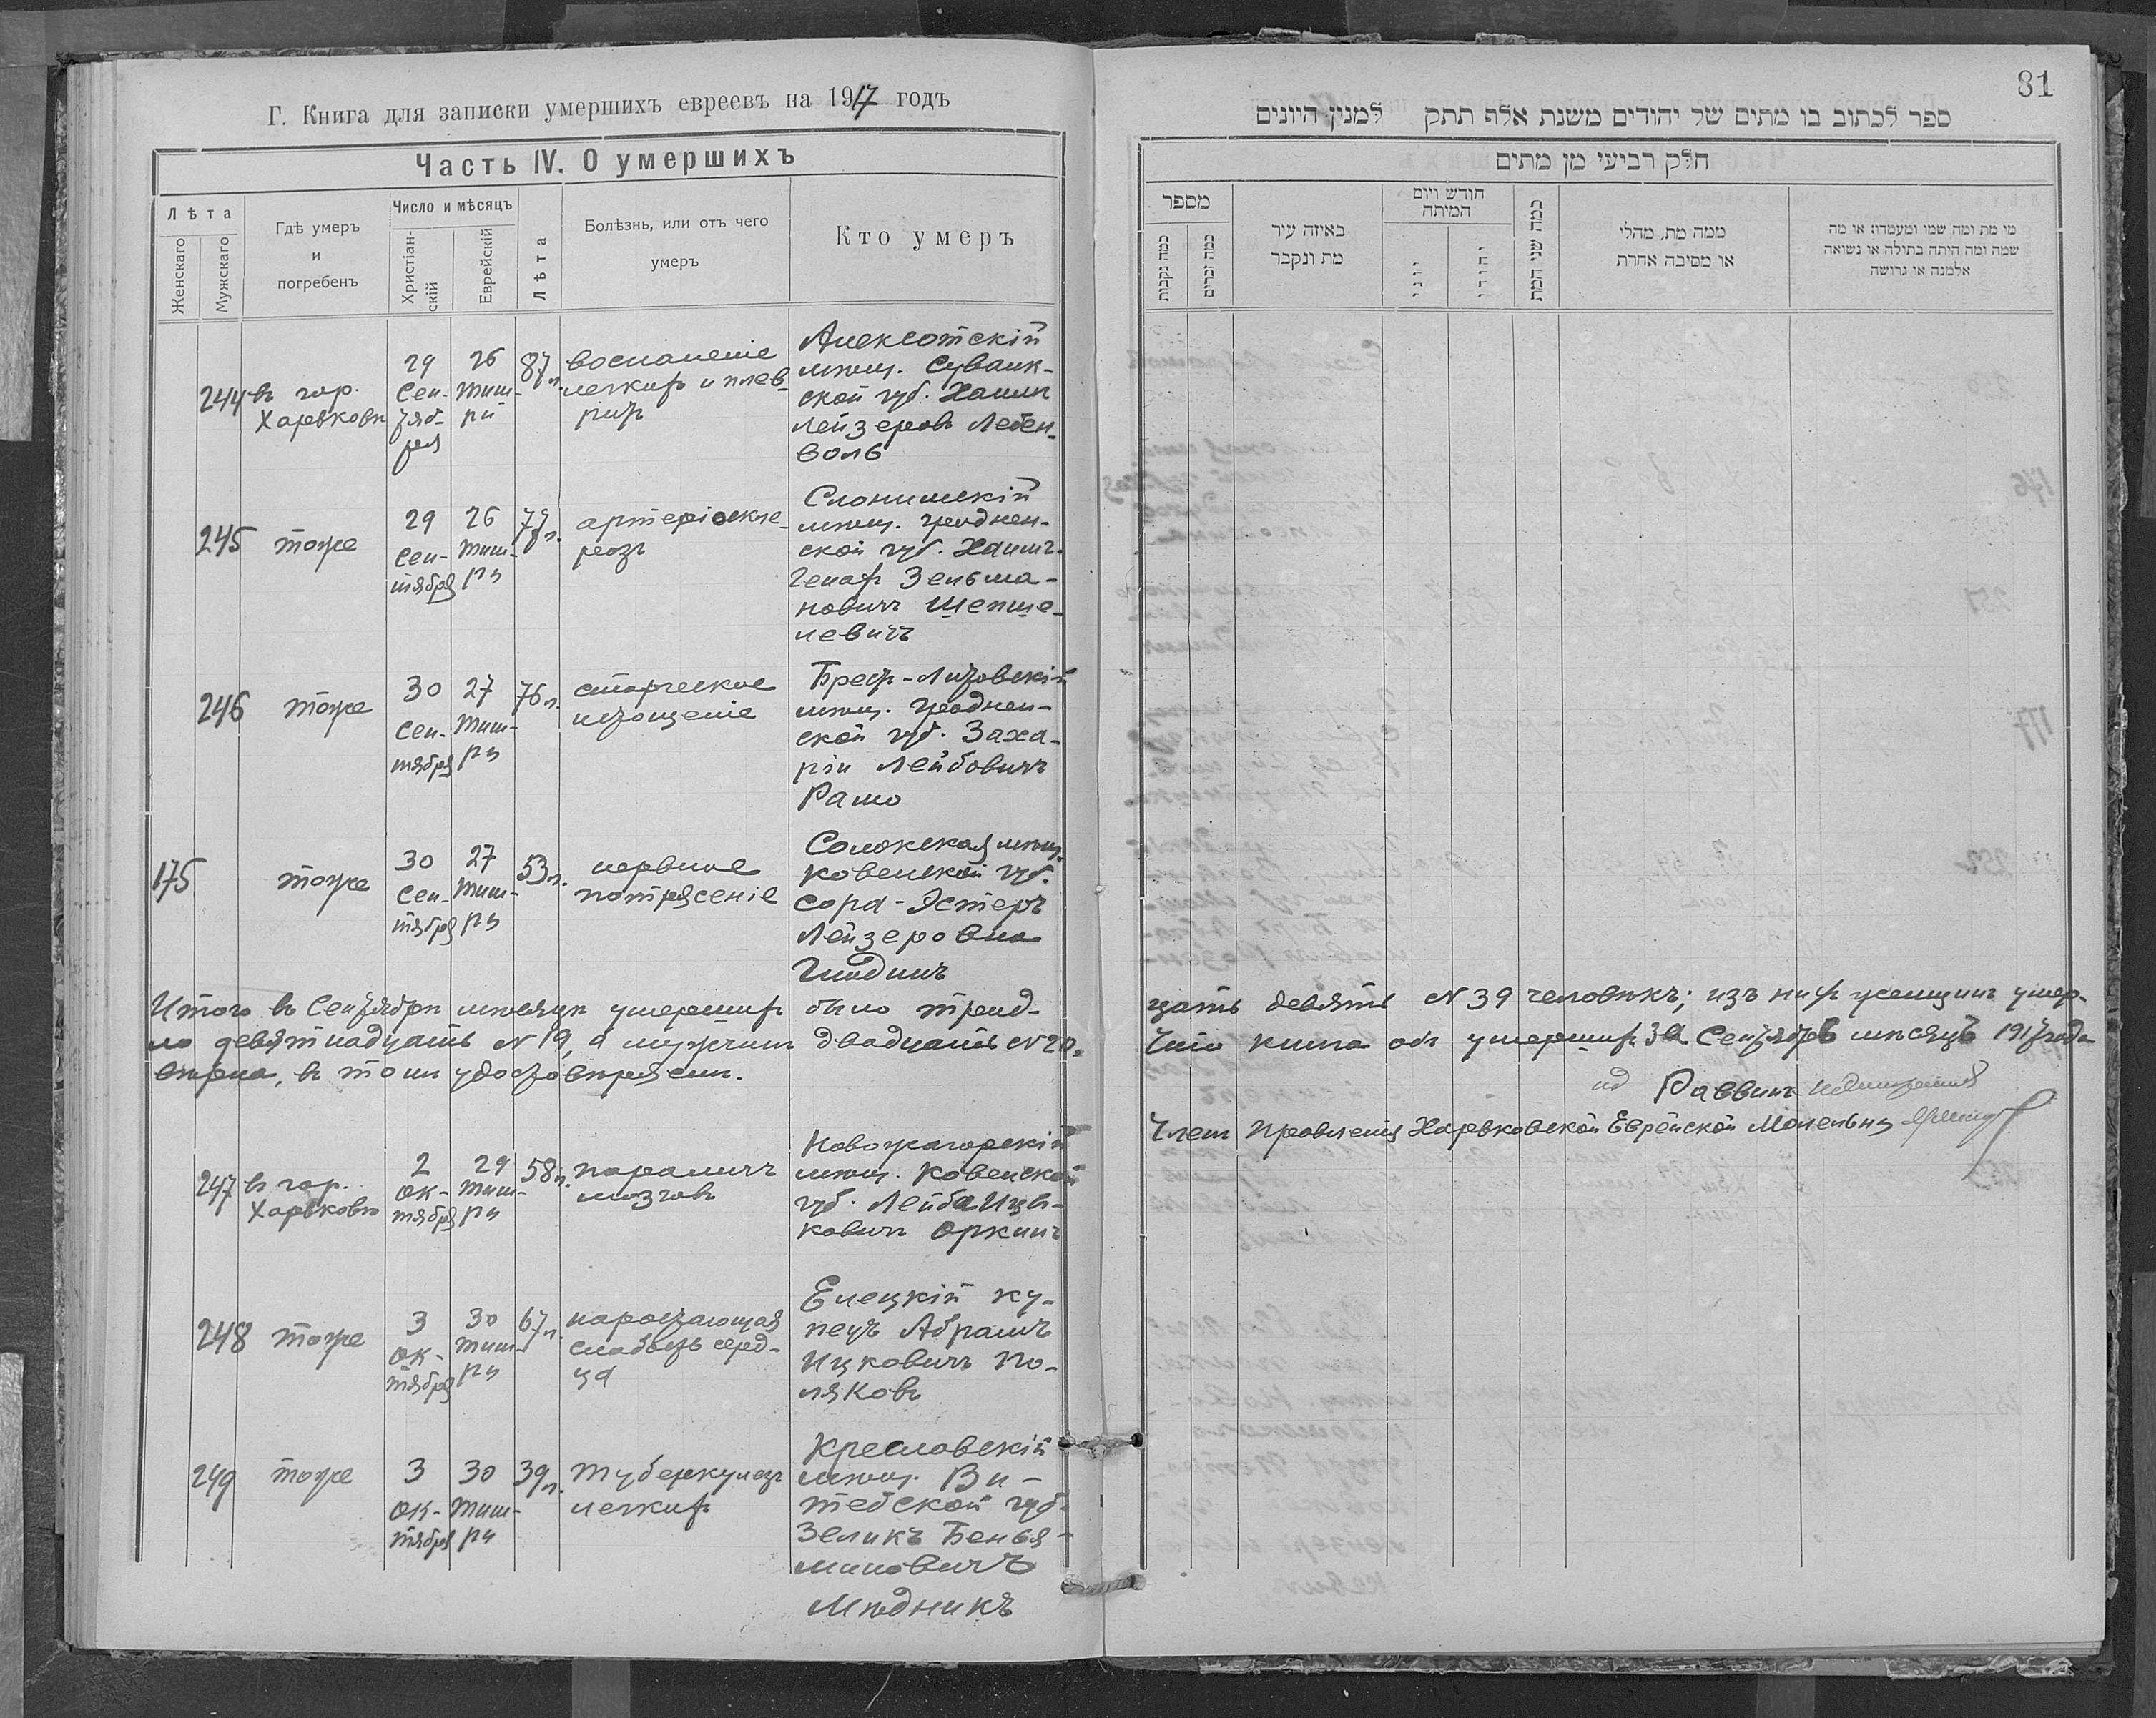 Г. Книга для записки умершихъ евреевъ на 1917 годъ
Часть IV. О умершихъ
Лѣта
Женскаго
Мужскаго
Гдѣ умеръ
и
погребенъ
Число и мѣсяцъ
Христіан-
скій
Еврейскій
Лѣта
Болѣзнь, или отъ чего
умеръ
Кто умеръ
244
въ гор.
Харьковѣ
29
Сен-
тяб-
ря
26
Тиш-
ри
87 л.
воспаленіе
легкихъ и плев-
ритъ
Алексотскій
мѣщ. Сувалк-
ской губ. Хаимъ
Лейзеровъ Лебен-
воль
245
тоже
29
Сен-
тября
26
Тиш-
ри
77 л.
артеріоскле-
розъ
Слонимскій
мѣщ. Гроднен-
ской губ. Хаимъ-
Генахъ Зельма-
новичъ Шепше-
левичъ
246
тоже
30
Сен-
тября
27
Тиш-
ри
76 л.
старческое
истощеніе
Брест-Литовскій
мѣщ. Гроднен-
ской губ. Заха-
рія Лейбовичъ
Рамо
175
тоже
30
Сен-
тября
27
Тиш-
ри
53 л.
нервное
потрясеніе
Солокская мѣщ.
Ковенской губ.
Сора-Эстеръ
Лейзеровна
Гиндинъ
Итого въ Сентябрѣ мѣсяцѣ умершихъ было трид-
цать девять № 39 человѣкъ; изъ нихъ женщинъ умер-
ло девятнадцать № 19, а мужчинъ двадцать № 20.
Что книга объ умершихъ за Сентябрь мѣсяцъ 1917 года
вѣрна, въ томъ удостовѣряемъ.
ид Раввинъ
Членъ Правленія Харьковской Еврейской Молельни
247
въ гор.
Харьковѣ
2
Ок-
тября
29
Тиш-
ри
58 л.
параличъ
мозговъ
Новожагорскій
мѣщ. Ковенской
губ. Лейба Ицы-
ковичъ Оркинъ
248
тоже
3
Ок-
тября
30
Тиш-
ри
67 л.
наростающая
слабость серд-
ца
Елецкій ку-
пецъ Абрамъ
Ицковичъ По-
ляковъ
249
тоже
3
Ок-
тября
30
Тиш-
ри
39 л.
Туберкулезъ
легкихъ
Креславскій
мѣщ. Ви-
тебской губ.
Зеликъ Бенья-
миновичъ
Мѣдникъ
81
ספר לכתוב בו מתים של יהודים משנת אלף תתק למנין היונים
חלק רביעי מן מתים
מספר
כמה נקבות
כמה זכרים
באיזה עיר
מת ונקבר
חודש ויום
המיתה
יוני
יהודי
כמה שני המת
ממה מת, מהלי
או מסיבה אחרת
מי מת ומה שמו ומעמדו; או מה
שמה ומה היתה בתולה או נשואה
אלמנה או גרושה